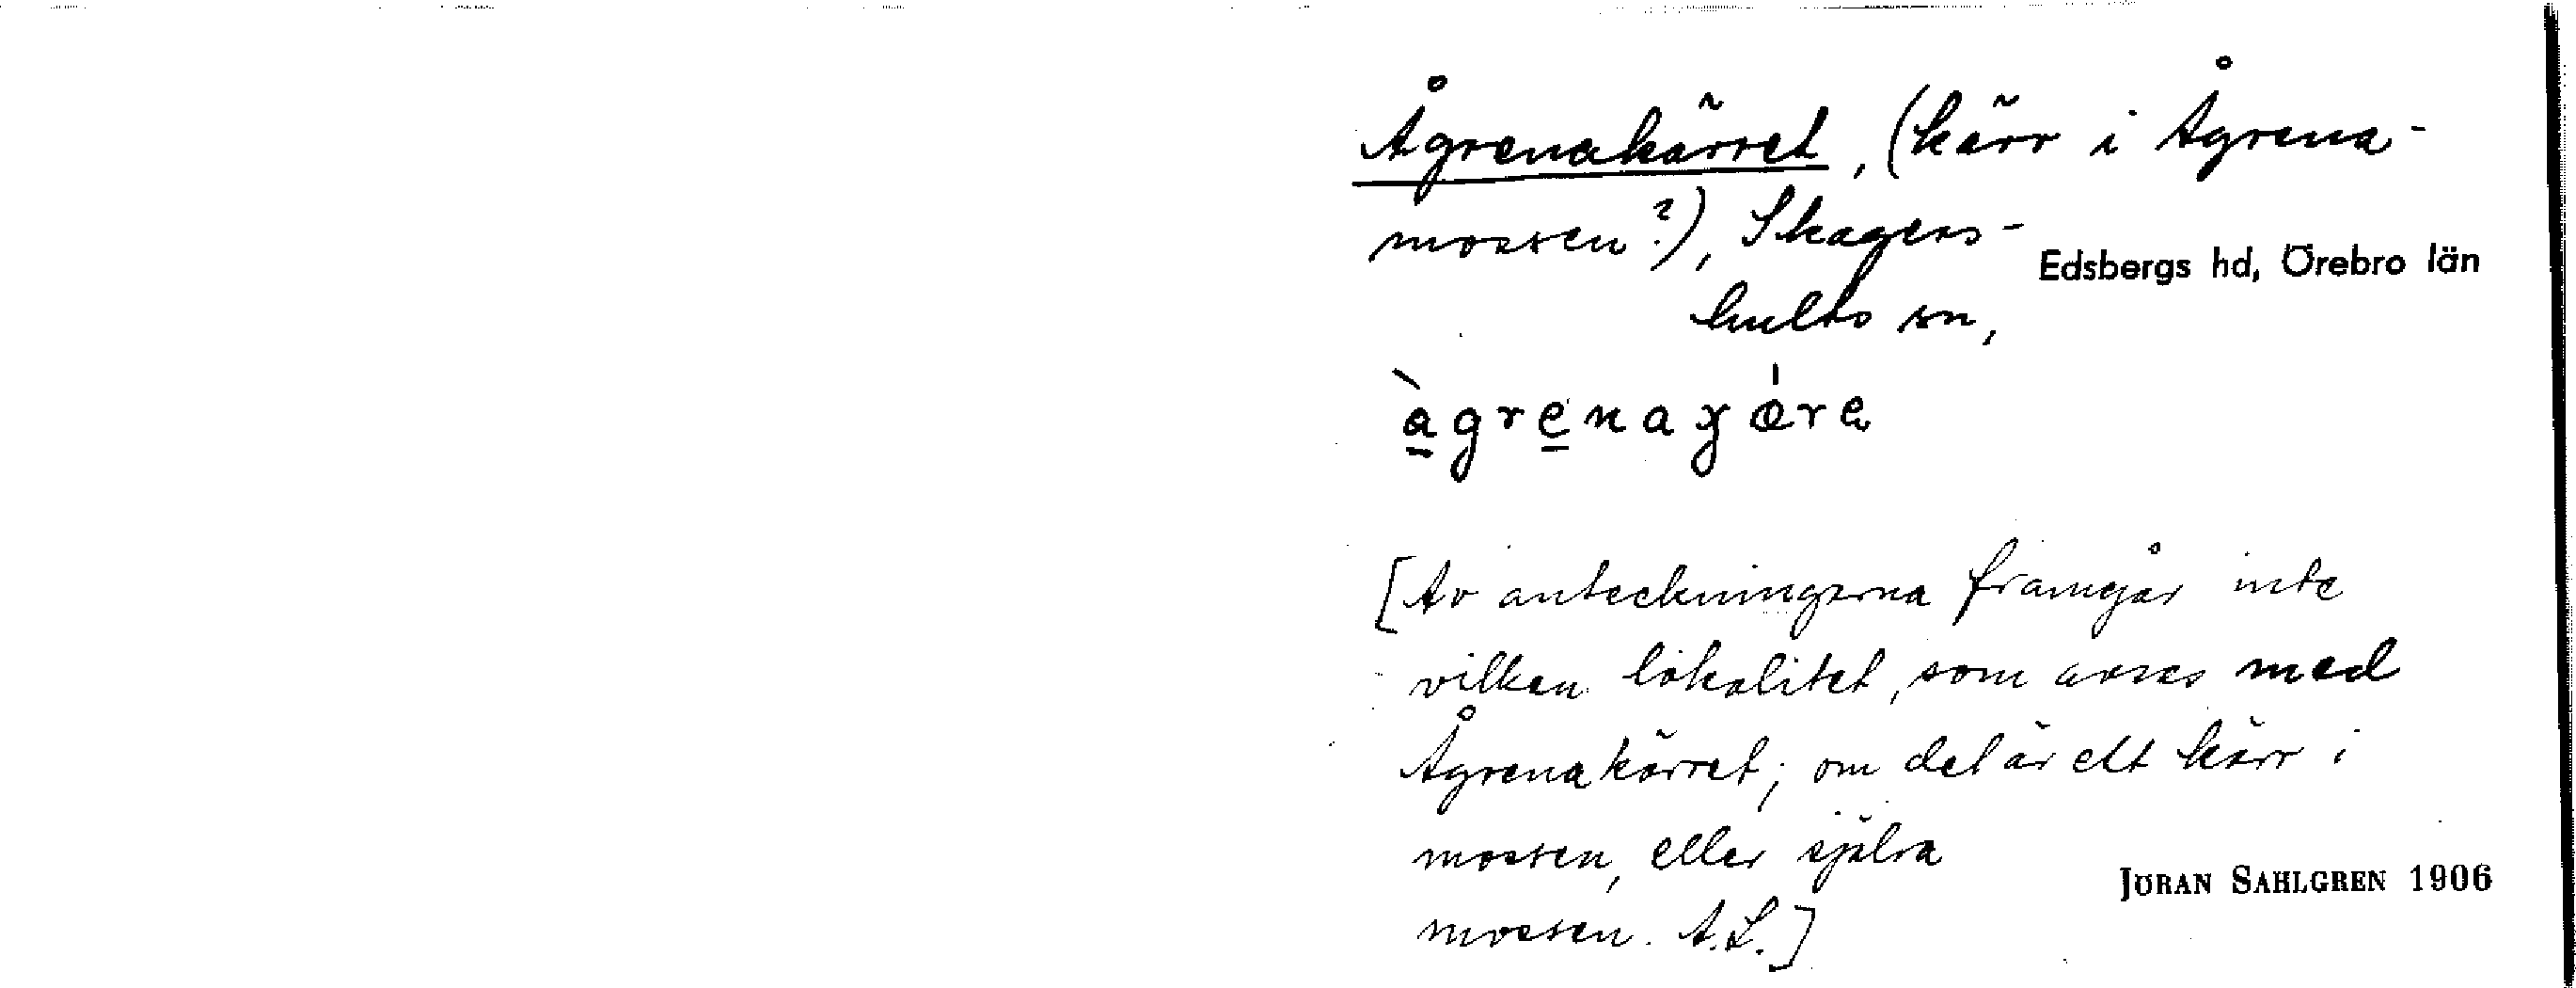 Ågrenakärret, (kärr i Ågrena-
mossen?), Skagers-
Edsbergs hd, Örebro län
hults sn,
[Av anteckningarna framgår inte
vilken lokalitet, som avses med
Ågrenakärret; om det är ett kärr i
mossen, eller själva
JÖRAN SAHLGREN 1906
mossen. A.L.]